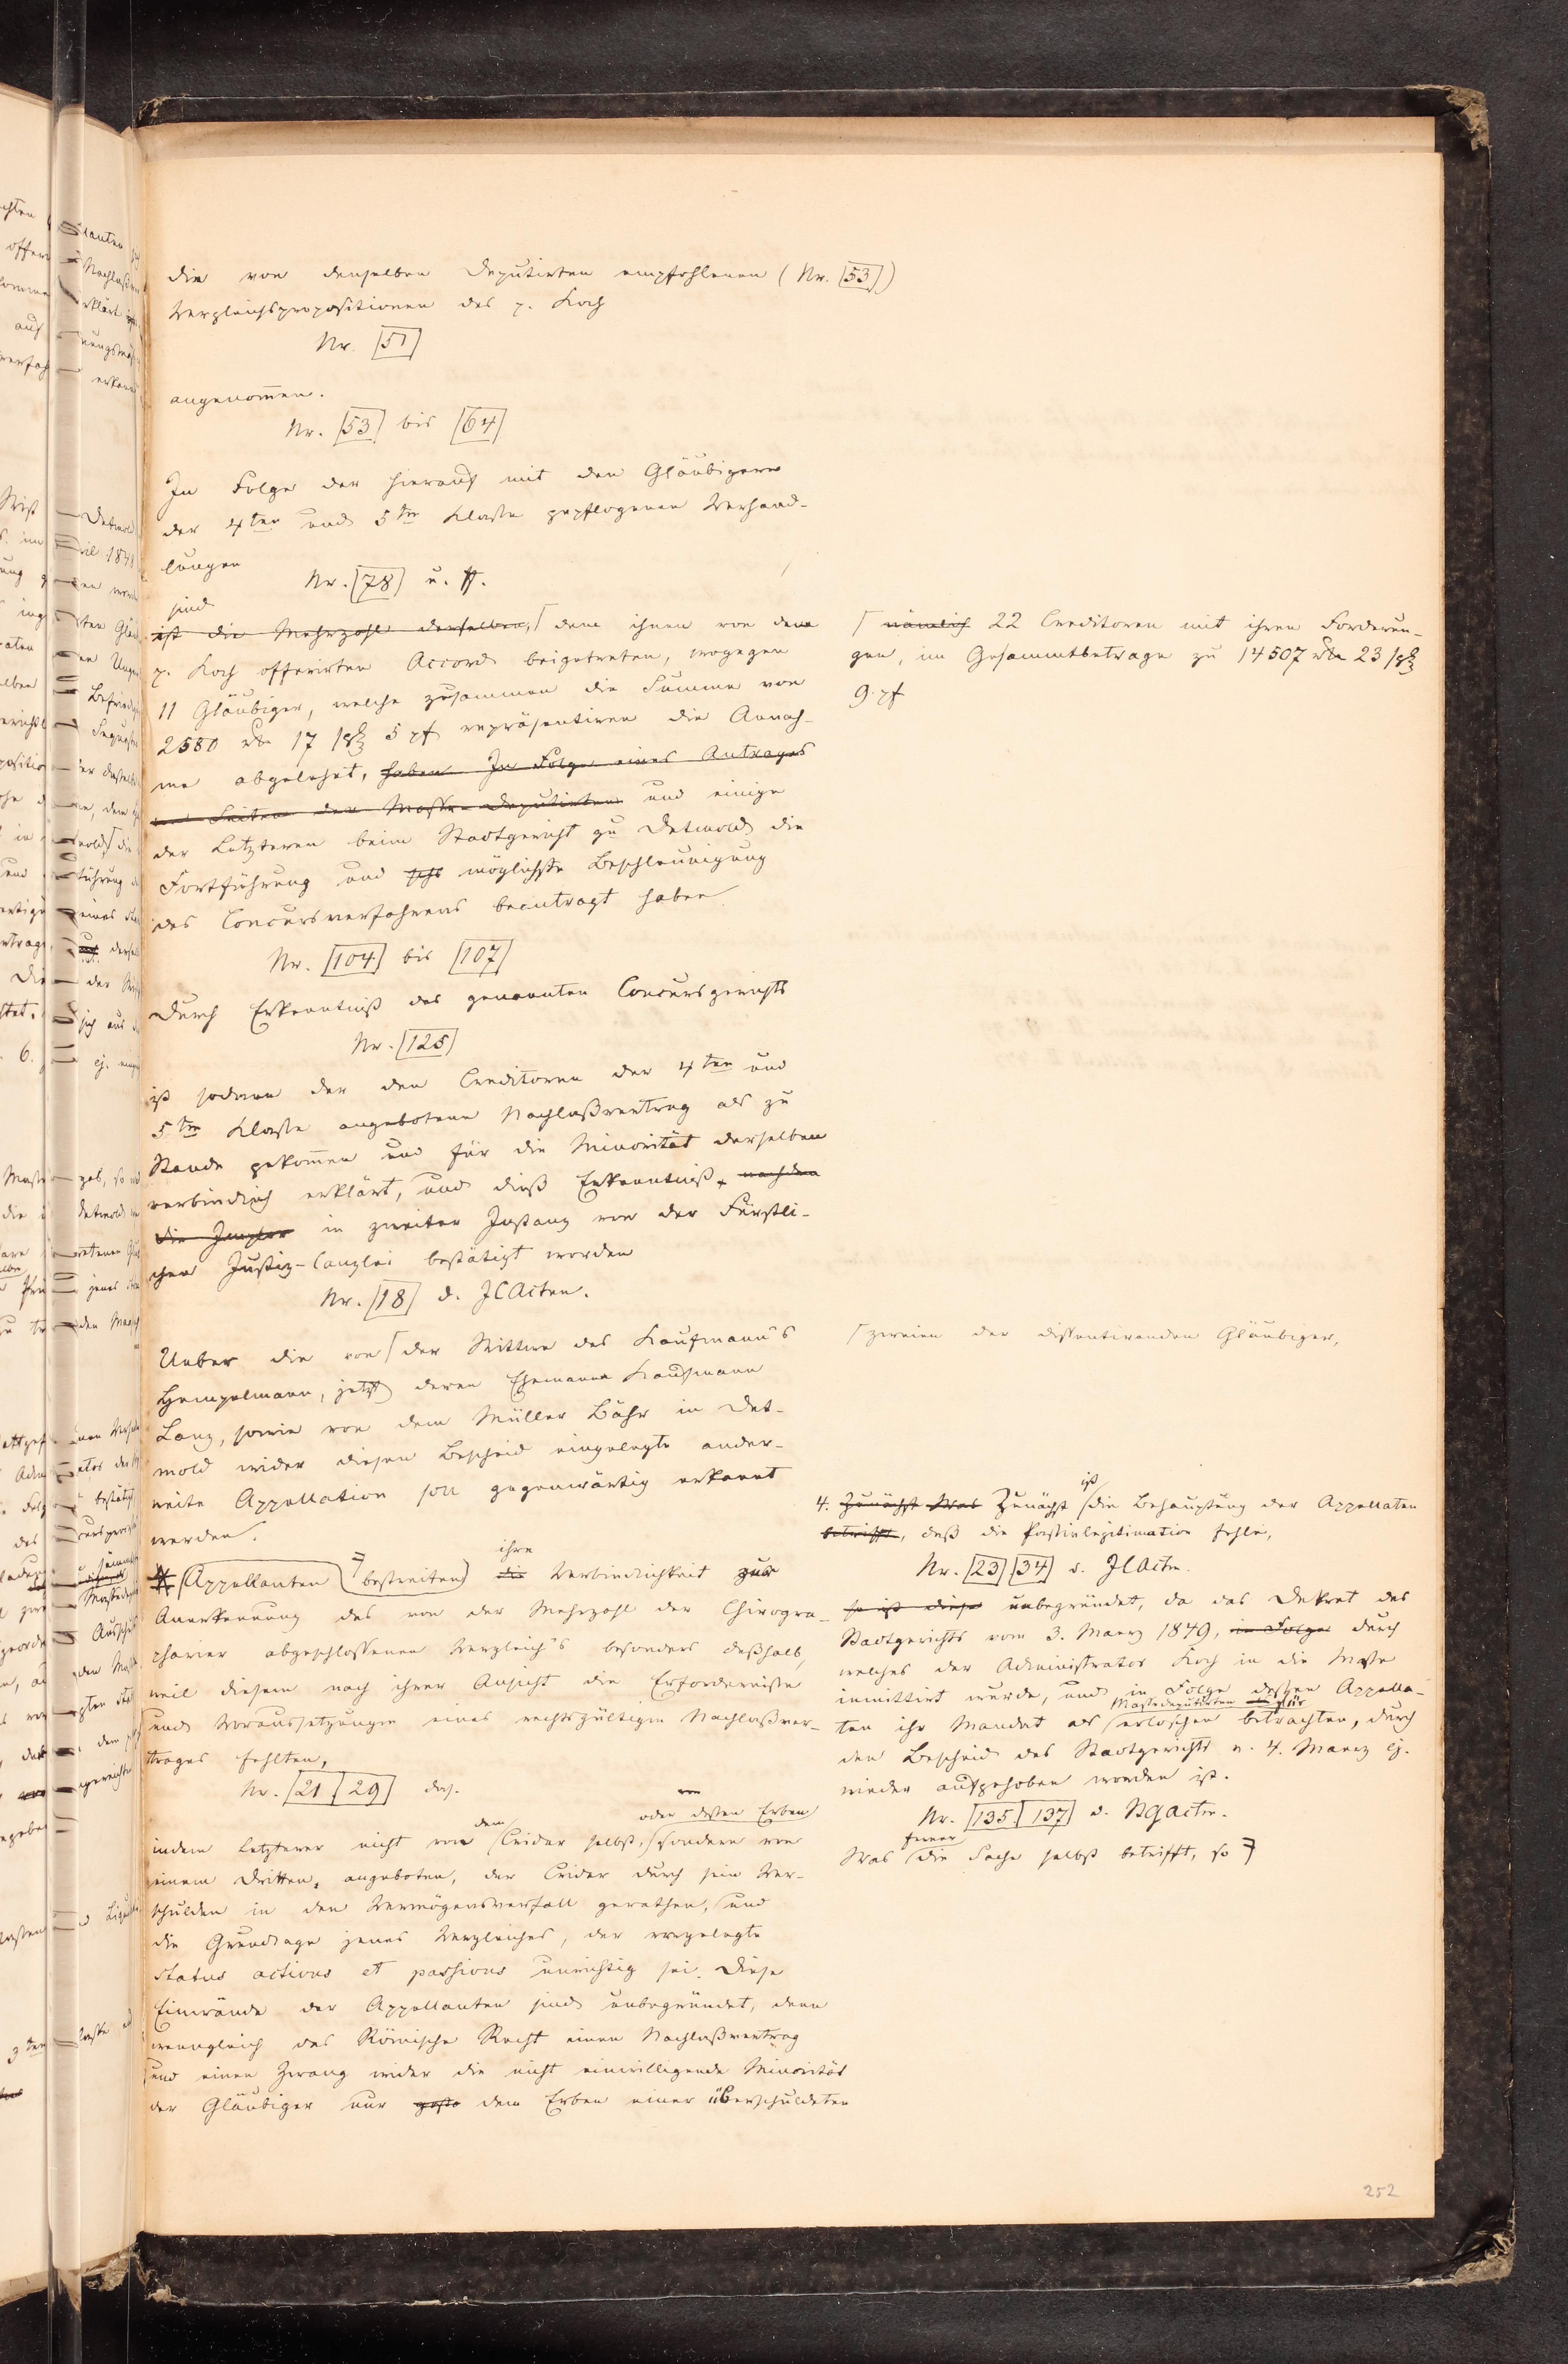 die von denselben Deputirten empfohlenen (Nr. [53])
Vergleichspropositionen des p. Koch
Nr. [51]
angenom̄en.
Nr. [53] bis [64]
In Folge der hierauf mit den Gläubigern
der 4ten und 5ten Klasse gepflogenen Verhand-
lungen
Nr. [78] u. ff.
sind
ist die Mehrzahl derselben, dem ihnen von dem
p. Koch offerirten Accord beigetreten, wogegen
11 Gläubiger, welche zusammen die Summe von
2580 rthlr 17 sgr 5 pf repräsentiren die Annah-
me abgelehnt, haben. In Folge eines Antrages
von Seiten der Masse-Deputirten und einige
der Letzteren beim Stadtgericht zu Detmold die
Fortführung und möglichste Beschleunigung
des Concursverfahrens beantragt haben.
Nr. [104] bis [107]
Durch Erkenntniß des genannten Concursgerichts
Nr. [125]
ist sodann der den Creditoren der 4ten und
5ten Klasse angebotene Nachlaßvertrag als zu
Stande gekom̄en und für die Minorität derselben
verbindlich erklärt, und dieß Erkenntniß, nachdem
die in zweiter Instanz von der Fürstli-
chen Justiz-Canzlei bestätigt worden
Nr. [18] d. JCActen.
Ueber die von der Wittwe des Kaufmann's
Hempelmann, jetzt deren Ehemann Kaufmann
Lang, sowie von dem Müller Bähr in Det-
mold wider diesen Bescheid eingelegte ander-
weite Appellation soll gegenwärtig erkannt
werden.
ihre
Appellanten bestreiten die Verbindlichkeit zur
Anerkennung des von der Mehrzahl der Chirogra-
pharier abgeschlossenen Vergleich's besonders deßhalb,
weil diesem nach ihrer Ansicht die Erfordernisse
und Voraussetzungen eines rechtsgültigen Nachlaßver-
trages fehlten,
Nr. [21] [29] das.
oder dessen Erben
dem
indem Letzterer nicht von Cridar selbst, sondern von
einem Dritten, angeboten, der Cridar durch sein Ver-
schulden in den Vermögensverfall gerathen, und
die Grundlage jenes Vergleiches, der vorgelegte
status activus et passivus unrichtig sei. Diese
Einwände der Appellanten sind unbegründet, denn
wenngleich das Römische Recht einen Nachlaßvertrag
und einen Zwang wider die nicht einwilligende Minorität
der Gläubiger nur dem Erben einer überschuldeten
nämlich 22 Creditoren mit ihren Forderun-
gen, im Gesammtbetrage zu 14507 rthlr 23 sgr
9 pf
zweien der dissentirenden Gläubiger,
ist
4. Zunächst Was Zunächst die Behauptung der Appellaten
betrifft, daß die Passivlegitimation fehle,
Nr. [23] [34] d. JCActen.
so ist diese unbegründet, da das Dekret des
Stadtgerichts vom 3. Maerz 1849, in Folge durch
welches der Administrator Koch in die Masse
immittirt wurde, und in Folge dessen Appella-
Massedeputirten für
ten ihr Mandat als erloschen betrachten, durch
den Bescheid des Stadtgerichts v. 4. Maerz ej.
wieder aufgehoben worden ist.
Nr. [135] [137] d. StGActen.
ferner
Was die Sache selbst betrifft, so
252